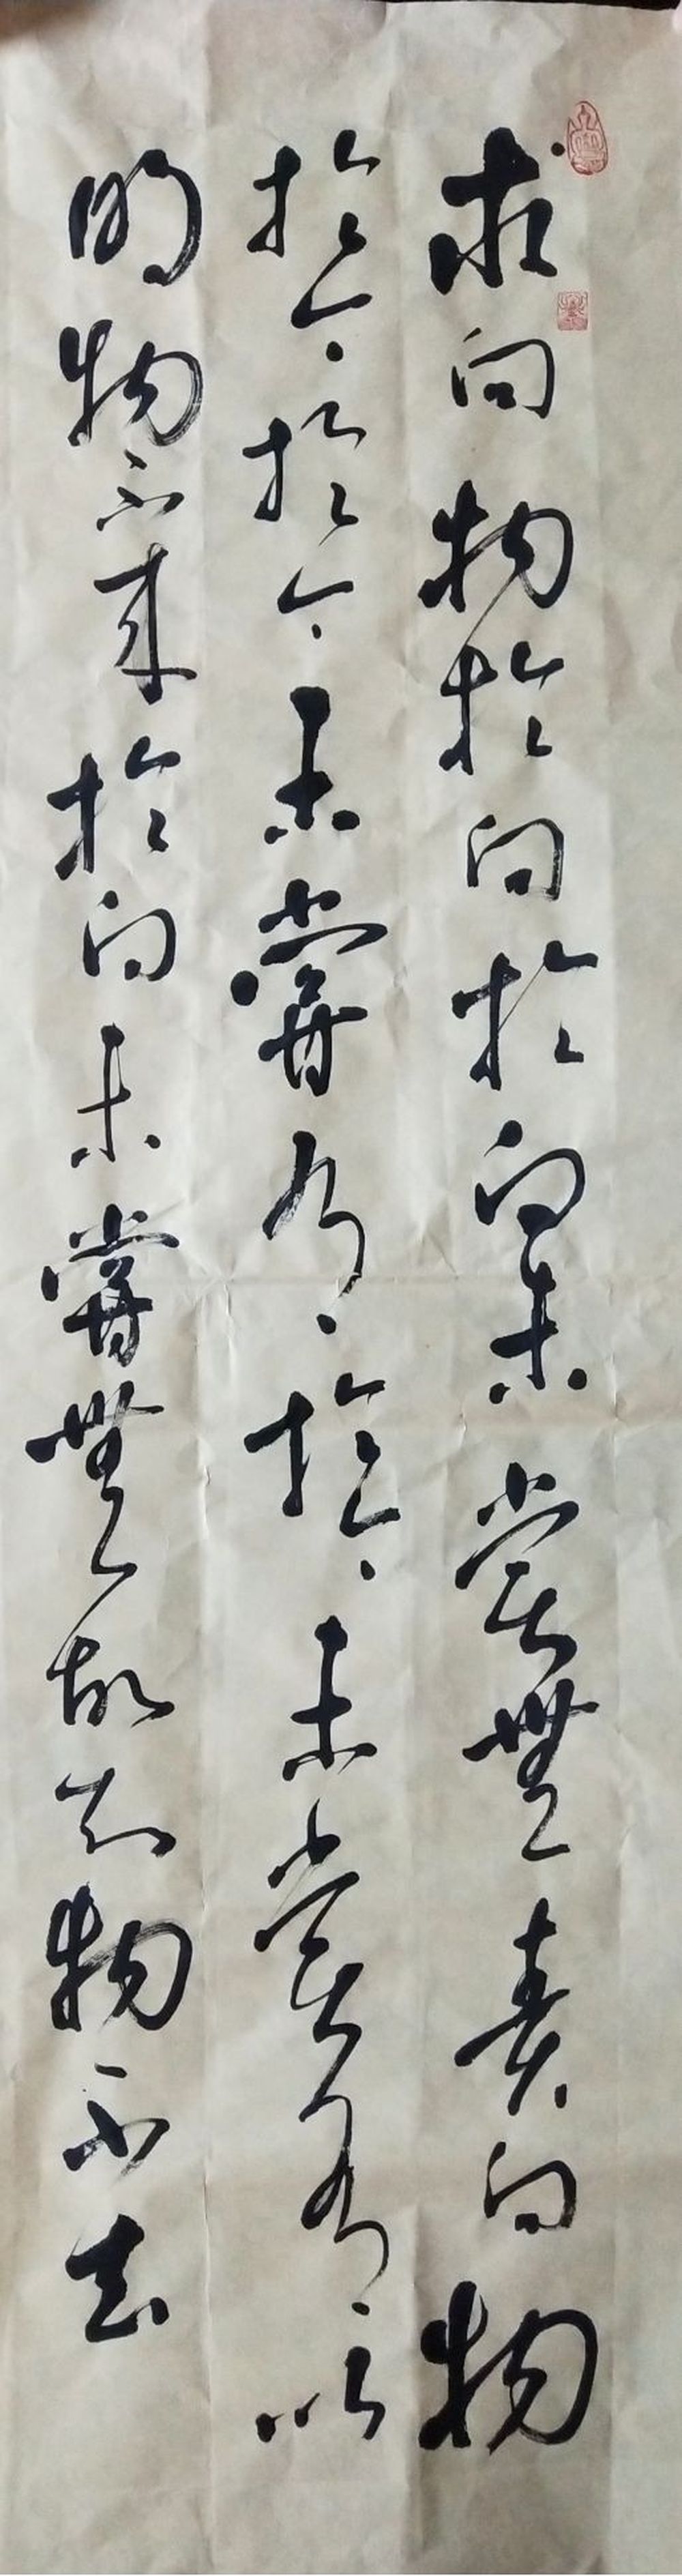 求向物於向於向未嘗無責向物
於今於今未嘗有於今未嘗有以
明物不來於向未嘗無故知物不去